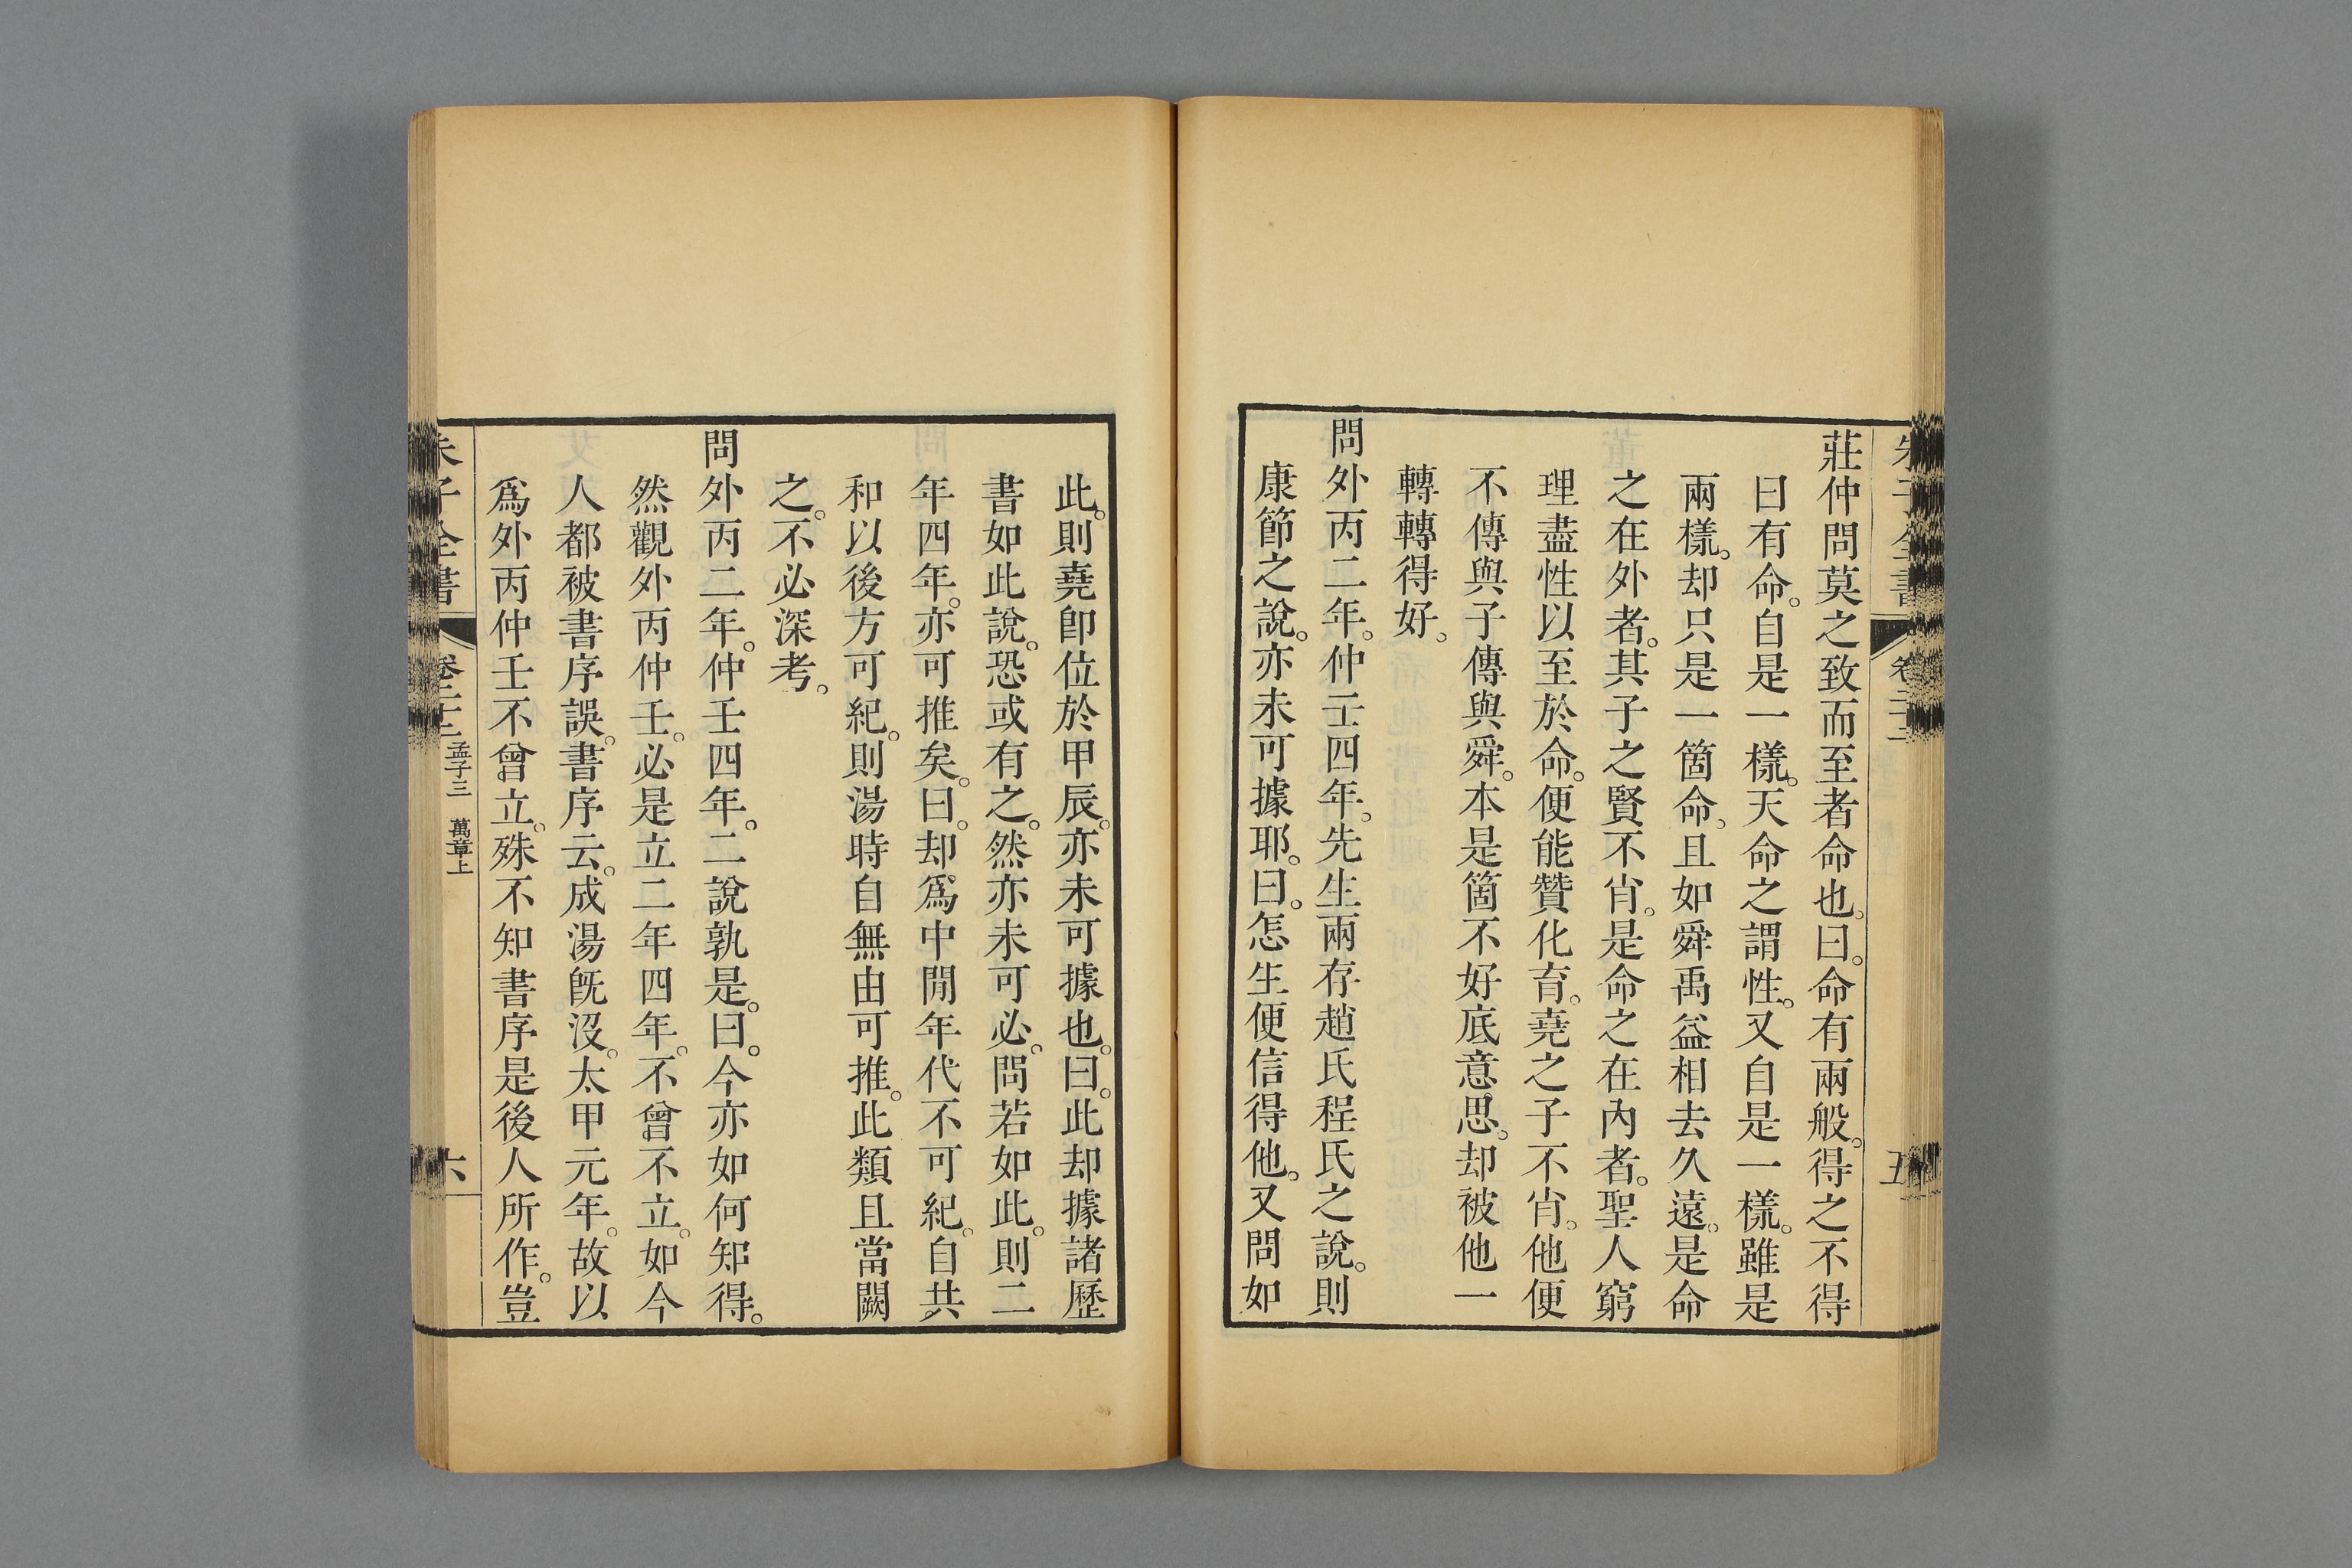 莊仲問莫之致而至者命也。曰。命有兩般。得之不得
曰有命。自是一樣。天命之謂性。又自是一樣。雖是
兩樣。却只是一箇命。且如舜禹益相去久遠。是命
之在外者。其子之賢不肖。是命之在內者。聖人窮
理盡性以至於命。便能贊化育。堯之子不肖。他便
不傳與子傳與舜。本是箇不好底意思。却被他一
轉轉得好。
問外丙二年。仲壬四年。先生兩存趙氏程氏之說。則
康節之說。亦未可據耶。曰。怎生便信得他。又問如
此。則堯卽位於甲辰。亦未可據也。曰。此却據諸歷
書如此說。恐或有之。然亦未可必。問若如此。則二
年四年。亦可推矣。曰。却爲中閒年代不可紀。自共
和以後方可紀。則湯時自無由可推。此類且當闕
之。不必深考。
問外丙二年。仲壬四年。二說孰是。曰。今亦如何知得。
然觀外丙仲壬。必是立二年四年。不曾不立。如今
人都被書序誤。書序云。成湯旣沒。太甲元年。故以
爲外丙仲壬不曾立。殊不知書序是後人所作。豈
朱子全書
卷二十二
孟子三 萬章上
六